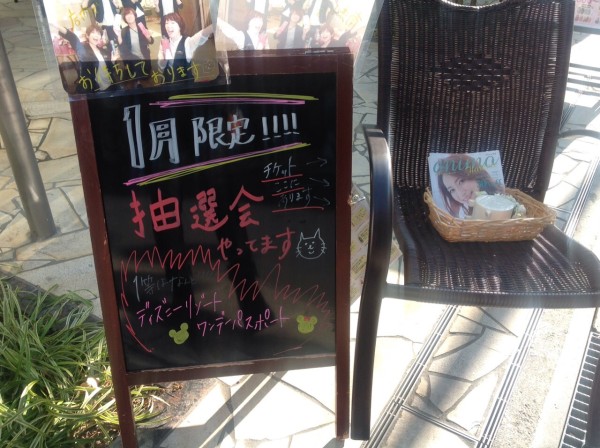 おまちしております
1月限定!!!!
チケット
ここに
あります
抽選会
やってます
1等はなんと
ディズニーリゾート
ワンデーパスポート